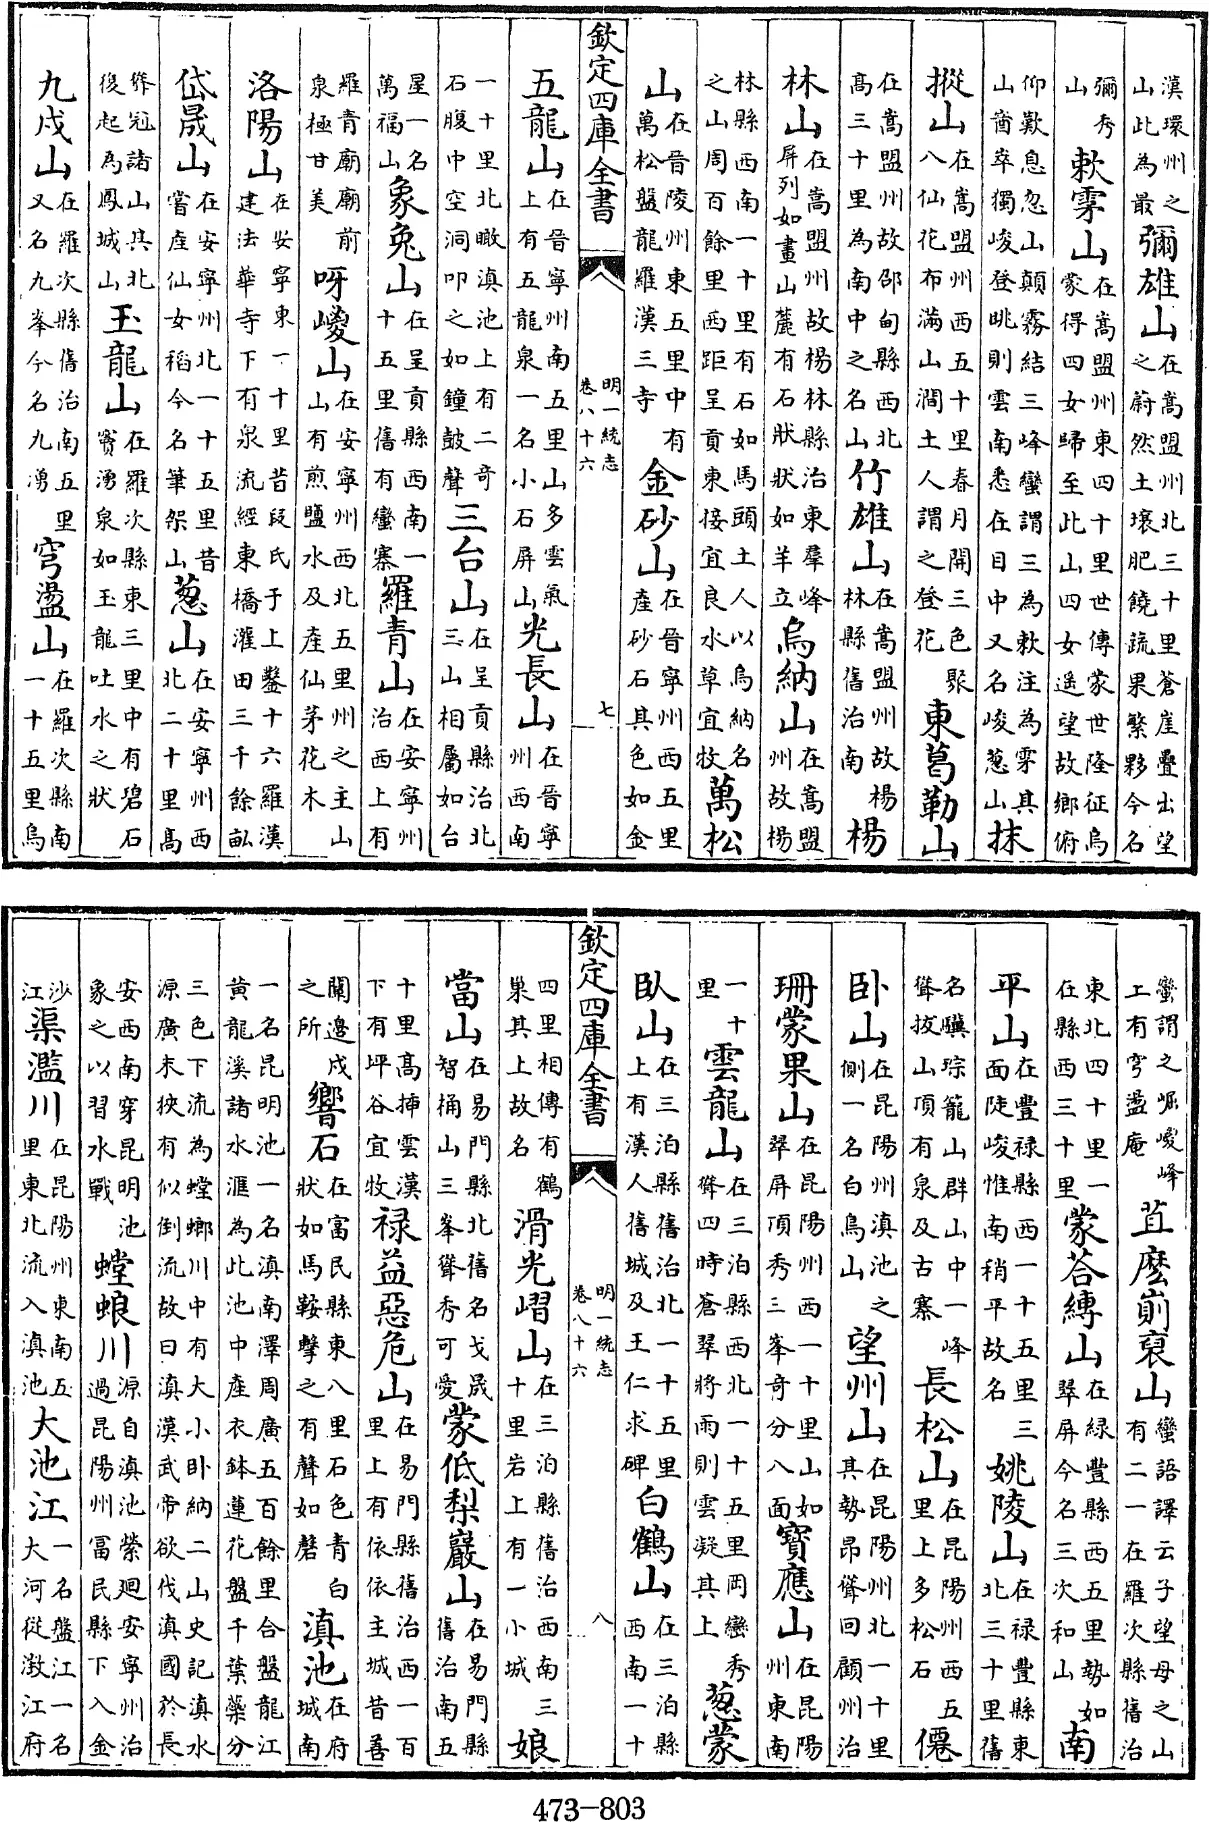 漢環州之山此為最彌雄山在嵩盟州北三十里蒼崖疊出望之蔚然土壤肥饒蔬果繁夥今名
彌秀山欶雺山在嵩盟州東四十里世傳蒙世隆征烏蒙得四女歸至此山四女遥望故鄉俯
仰歎息忽山顛霧結三峰蠻謂三為欶注為雺其山崷崒獨峻登眺則雲南悉在目中又名峻葱山抹
摐山在嵩盟州西五十里春月開三色聚八仙花布滿山澗土人謂之登花東葛勒山
在嵩盟州故邵甸縣西北髙三十里為南中之名山竹雄山在嵩盟州故楊林縣舊治南楊
林山在嵩盟州故楊林縣治東羣峰屏列如畫山麓有石狀狀如羊立烏納山在嵩盟州故楊
林縣西南一十里有石如馬頭土人以烏納名之山周百餘里西距呈貢東接宜良水草宜牧萬松
山在晉陵州東五里中有萬松盤龍羅漢三寺金砂山在晉寧州西五里産砂石其色如金
欽定四庫全書
明一統志
卷八十六
七
五龍山在晉寧州南五里山多雲氣上有五龍泉一名小石屏山光長山在晉寧州西南
一十里北瞰滇池上有二奇石腹中空洞叩之如鐘鼓聲三台山在呈貢縣治北三山相屬如台
星一名萬福山象兔山在呈貢縣西南一十五里舊有蠻寨羅青山在安寧州治西上有
羅青廟廟前泉極甘美呀嵕山在安寧州西北五里州之主山山有煎鹽水及産仙茅花木
洛陽山在安寧東一十里昔段氏于上鑿十六羅漢建法華寺下有泉流經東橋灌田三千餘畝
岱晟山在安寧州北一十五里昔嘗産仙女稻今名筆架山葱山在安寧州西北二十里髙
聳冠諸山其北後起為鳳城山玉龍山在羅次縣東三里中有碧石寳湧泉如玉龍吐水之狀
九戍山在羅次縣舊治南五里又名九峯今名九湧穹盪山在羅次縣南一十五里烏
蠻謂之崛嵕峰上有穹盪庵苴麽崱裒山蠻語譯云子望母之山有二一在羅次縣舊治
東北四十里一在縣西三十里蒙荅縛山在緑豐縣西五里勢如翠屏今名三次和山南
平山在豐禄縣西一十五里三面陡峻惟南稍平故名姚陵山在禄豐縣東北三十里舊
名驥琮籠山群山中一峰聳拔山頂有泉及古寨長松山在昆陽州西五里上多松石僊
卧山在昆陽州滇池之側一名白鳥山望州山在昆陽州北一十里其勢昂聳回顧州治
珊蒙果山在昆陽州西一十里山如翠屏頂秀三峯奇分八面寳應山在昆陽州東南
一十里雲龍山在三泊縣西北一十五里岡巒秀聳四時蒼翠將雨則雲凝其上葱蒙
臥山在三泊縣舊治北一十五里上有漢人舊城及王仁求碑白鶴山在三泊縣西南一十
欽定四庫全書
明一統志
卷八十六
八
四里相傳有鶴巢其上故名滑光嶍山在三泊縣舊治西南三十里岩上有一小城娘
當山在易門縣北舊名戈晟智桶山三峯聳秀可愛蒙低梨巖山在易門縣舊治南五
十里髙揷雲漢下有坪谷宜牧禄益惡危山在易門縣舊治西一百里上有依依主城昔善
闡邊戍之所響石在富民縣東八里石色青白狀如馬鞍擊之有聲如磬滇池在府城南
一名昆明池一名滇南澤周廣五百餘里合盤龍江黄龍溪諸水滙為此池中産衣鉢蓮花盤千葉蘂分
三色下流為螳螂川中有大小卧納二山史記滇水源廣末狹有似倒流故曰滇漢武帝欲伐滇國於長
安西南穿昆明池象之以習水戰螳蜋川源自滇池縈廻安寧州治過昆陽州富民縣下入金
沙江渠濫川在昆陽州東南五里東北流入滇池大池江一名盤江一名大河從澂江府
473-803